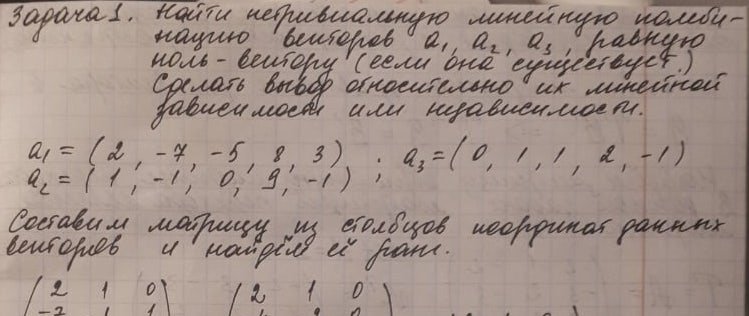 Задача 1. Найти нетривиальную линейную комби-
нацию векторов a₁, a₂, a₃, равную
ноль-вектору (если она существует.)
Сделать вывод относительно их линейной
зависимости или независимости.
a₁ = (2, -7, -5, 8, 3) ; a₃ = (0, 1, 1, 2, -1)
a₂ = (1, -1, 0, 9, -1) ;
Составим матрицу из столбцов координат данных
векторов и найдём её ранг.
2 1 0 2 1 0